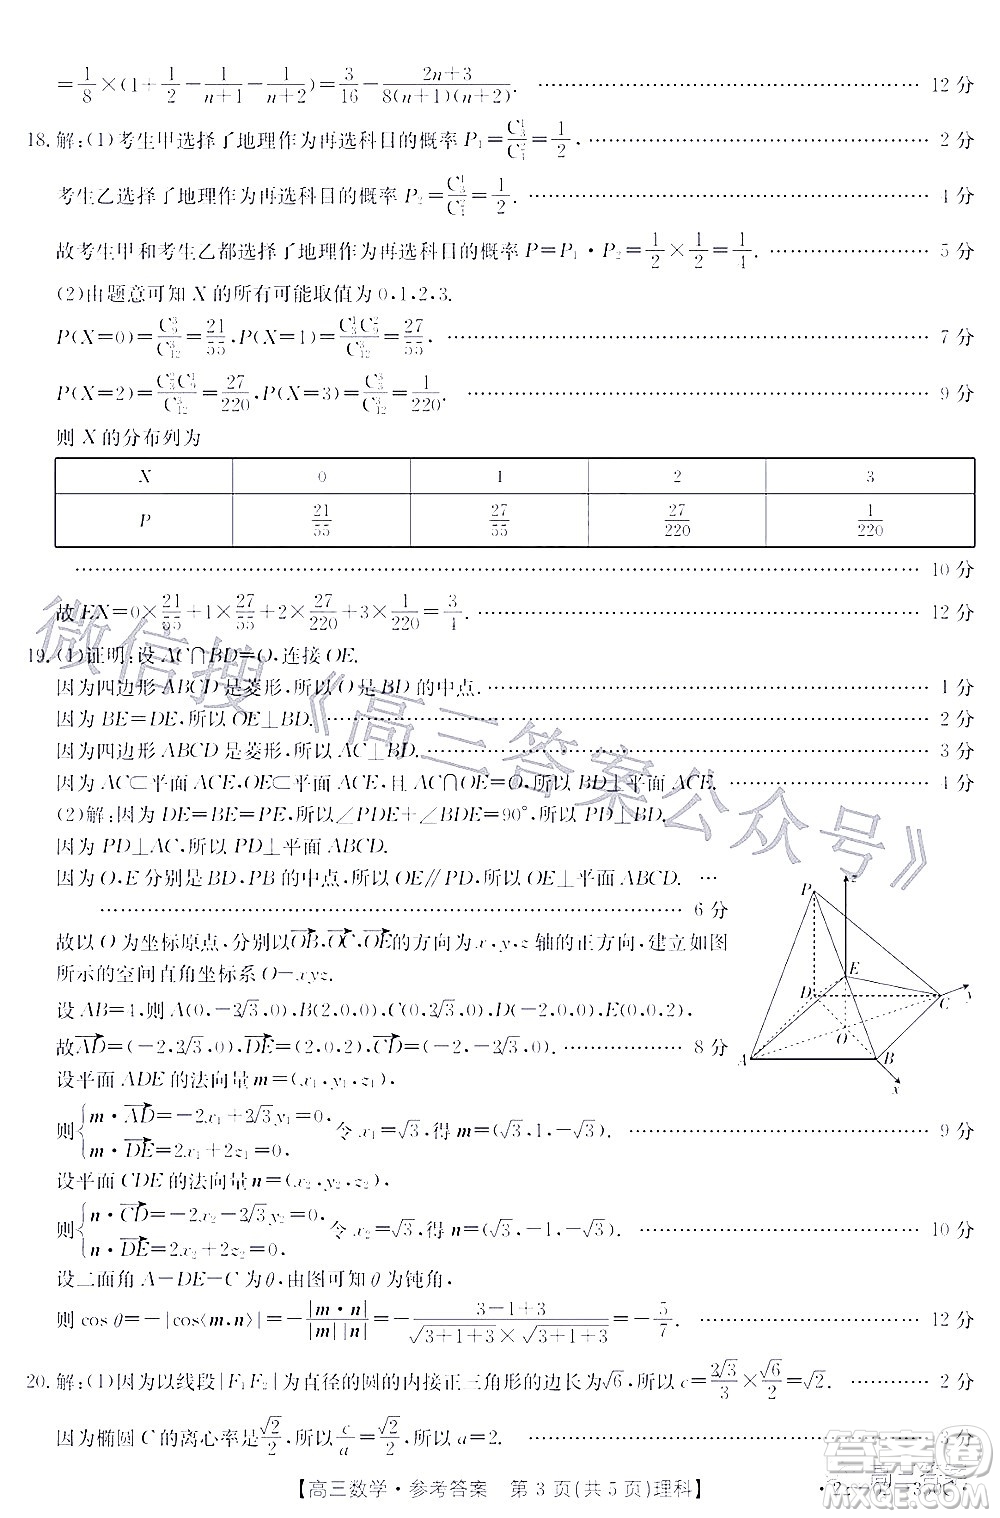 =1/8×(1+1/2-1/(n+1)-1/(n+2))=3/16-(2n+3)/(8(n+1)(n+2)). …… 12 分
18.解:(1)考生甲选择了地理作为再选科目的概率 P₁=C₃¹/C₄²=1/2, …… 2 分
考生乙选择了地理作为再选科目的概率 P₂=C₃¹/C₄²=1/2. …… 4 分
故考生甲和考生乙都选择了地理作为再选科目的概率 P=P₁·P₂=1/2×1/2=1/4. …… 5 分
(2)由题意可知 X 的所有可能取值为 0,1,2,3.
P(X=0)=C₉³/C₁₂³=21/55,P(X=1)=C₃¹C₉²/C₁₂³=27/55, …… 7 分
P(X=2)=C₃²C₉¹/C₁₂³=27/220,P(X=3)=C₃³/C₁₂³=1/220. …… 9 分
则 X 的分布列为
X 0 1 2 3
P 21/55 27/55 27/220 1/220
…… 10 分
故 EX=0×21/55+1×27/55+2×27/220+3×1/220=3/4. …… 12 分
19.(1)证明:设 AC∩BD=O,连接 OE.
因为四边形 ABCD 是菱形,所以 O 是 BD 的中点. …… 1 分
因为 BE=DE,所以 OE⊥BD. …… 2 分
因为四边形 ABCD 是菱形,所以 AC⊥BD. …… 3 分
因为 AC⊂平面 ACE,OE⊂平面 ACE,且 AC∩OE=O,所以 BD⊥平面 ACE. …… 4 分
(2)解:因为 DE=BE=PE,所以∠PDE+∠BDE=90°,所以 PD⊥BD.
因为 PD⊥AC,所以 PD⊥平面 ABCD.
因为 O,E 分别是 BD,PB 的中点,所以 OE∥PD,所以 OE⊥平面 ABCD. …
…… 6 分
故以 O 为坐标原点,分别以OB,OC,OE的方向为 x,y,z 轴的正方向,建立如图
所示的空间直角坐标系 O-xyz.
设 AB=4,则 A(0,-2√3,0),B(2,0,0),C(0,2√3,0),D(-2,0,0),E(0,0,2).
故AD=(-2,2√3,0),DE=(2,0,2),CD=(-2,-2√3,0). …… 8 分
设平面 ADE 的法向量 m=(x₁,y₁,z₁),
则{m·AD=-2x₁+2√3y₁=0,
m·DE=2x₁+2z₁=0, 令 x₁=√3,得 m=(√3,1,-√3). …… 9 分
设平面 CDE 的法向量 n=(x₂,y₂,z₂),
则{n·CD=-2x₂-2√3y₂=0,
n·DE=2x₂+2z₂=0, 令 x₂=√3,得 n=(√3,-1,-√3). …… 10 分
设二面角 A-DE-C 为 θ,由图可知 θ 为钝角,
则 cos θ=-|cos⟨m,n⟩|=-|m·n|/(|m||n|)=-(3-1+3)/(√(3+1+3)×√(3+1+3))=-5/7. …… 12 分
P
z
E
D
C
y
O
A
B
x
20.解:(1)因为以线段|F₁F₂|为直径的圆的内接正三角形的边长为√6,所以 c=2√3/3×√6/2=√2. …… 2 分
因为椭圆 C 的离心率为√2/2,所以c/a=√2/2,所以 a=2. …… 3 分
【高三数学·参考答案 第 3 页(共 5 页)理科】
微信搜《高三答案公众号》
答案圈